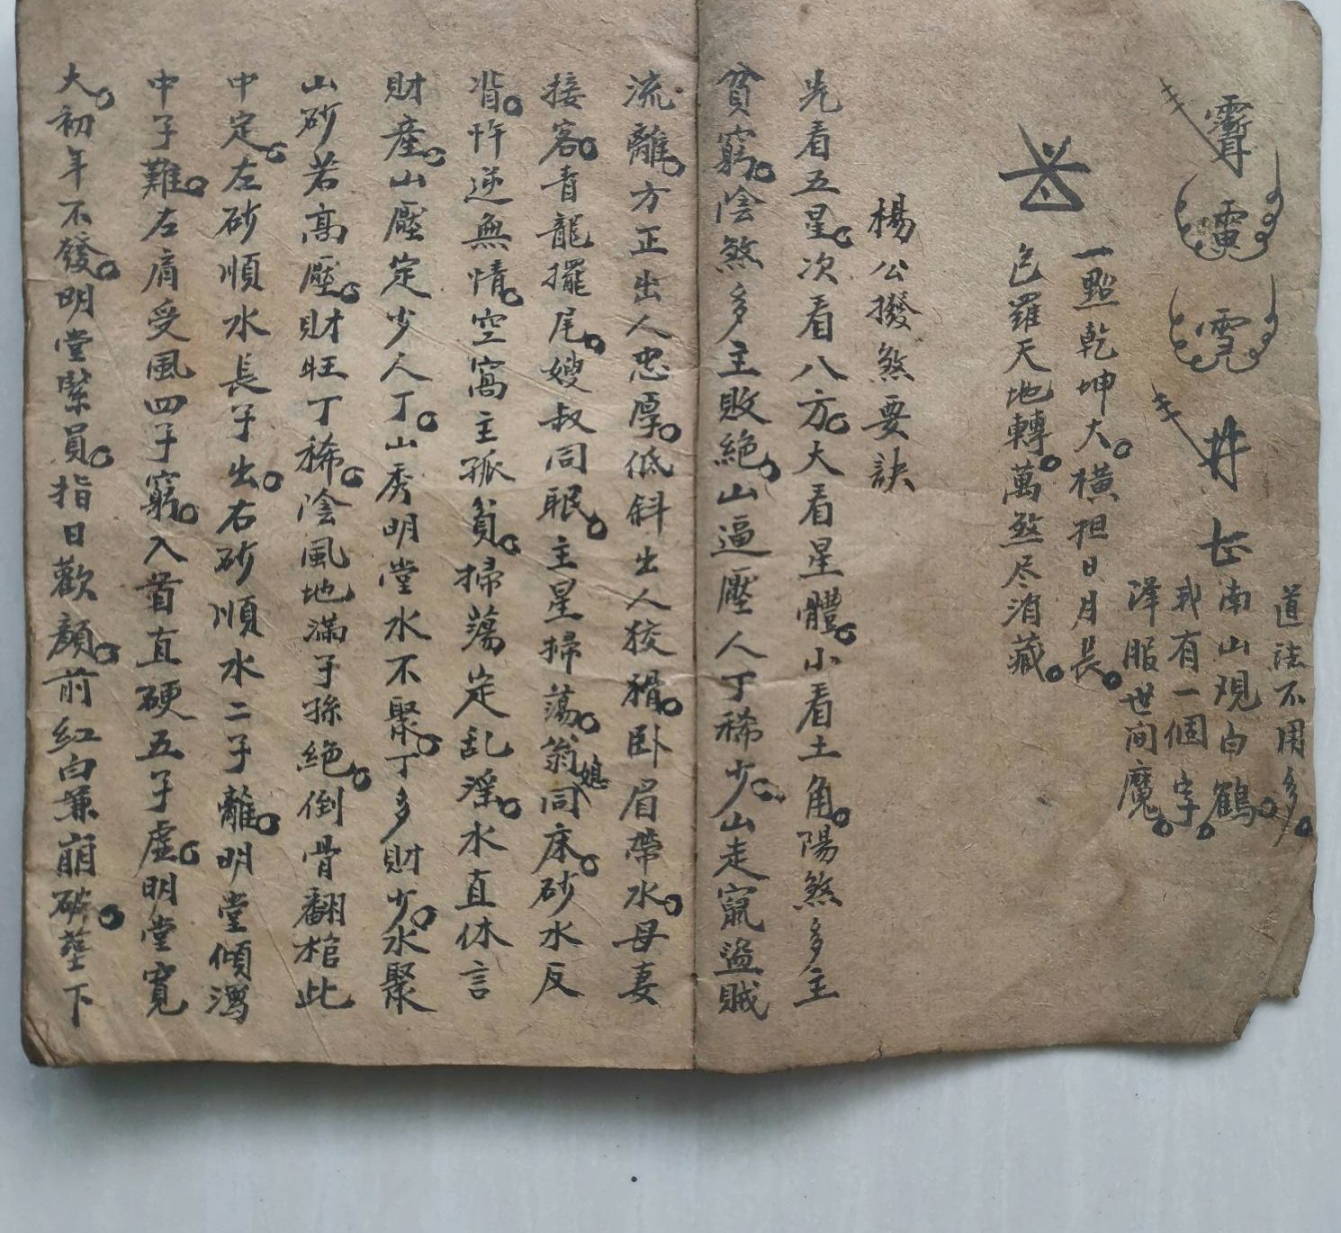 道法不用多。
南山观白鶴。
我有一個字。
澤服世间魔。
一點乾坤大。橫担日月長。
包羅天地轉。萬煞尽消藏。
楊公撥煞要訣
先看五星。次看八方。大看星體。小看土角。陽煞多主
貧窮。陰煞多主敗絕。山逼壓人丁稀少。山走竄盜賊
流離。方正出人忠厚。低斜出人狡猾。卧眉帶水。母妻
接客。青龍擺尾。嫂叔同眠。主星掃蕩。翁媳同床。砂水反
背。忤逆無情。空窩主孤貧。掃蕩定乱淫。水直休言
財產。山壓定少人丁。山秀明堂水不聚。丁多財少。水聚
山砂若高壓。財旺丁稀。陰風地滿子孫絕。倒骨翻棺此
中定。左砂順水長子出。右砂順水二子離。明堂傾瀉
中子難。左肩受風四子窮。入首直硬五子虛。明堂寬
大。初年不發。明堂緊員。指日歡顏。前紅白兼崩破。塋下